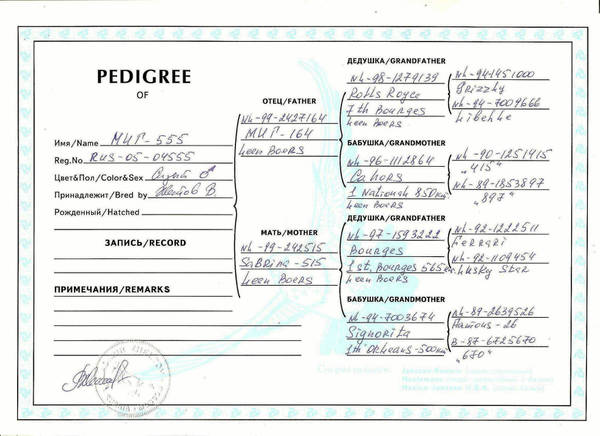 PEDIGREE
OF
Имя/Name МИГ-555
Reg.No RUS-05-04555
Цвет&Пол/Color&Sex Сизый ♂
Принадлежит/Bred by В.
Рожденный/Hatched
ЗАПИСЬ/RECORD
ПРИМЕЧАНИЯ/REMARKS
ОТЕЦ/FATHER
NL-99-2427164
МИГ-164
Leen Boers
МАТЬ/MOTHER
NL-99-242515
SaBRina-515
Leen Boers
ДЕДУШКА/GRANDFATHER
NL-98-1279139
Rolls Royce
7th Bourges
Leen Boers
БАБУШКА/GRANDMOTHER
NL-96-1112864
Cahors
1 National 850км
Leen Boers
ДЕДУШКА/GRANDFATHER
NL-97-1593222
Bourges
1st. Bourges
Leen Boers
БАБУШКА/GRANDMOTHER
NL-94-7003674
Signorita
1th Orleans-500км
NL-941451000
Grizzly
NL-94-7009666
Libelle
NL-90-1251415
"415"
NL-89-1853897
"897"
NL-92-1222511
Ferrari
NL-92-1109454
Lusky Star
NL-89-2639526
Famous-26
B-87-6725670
"670"